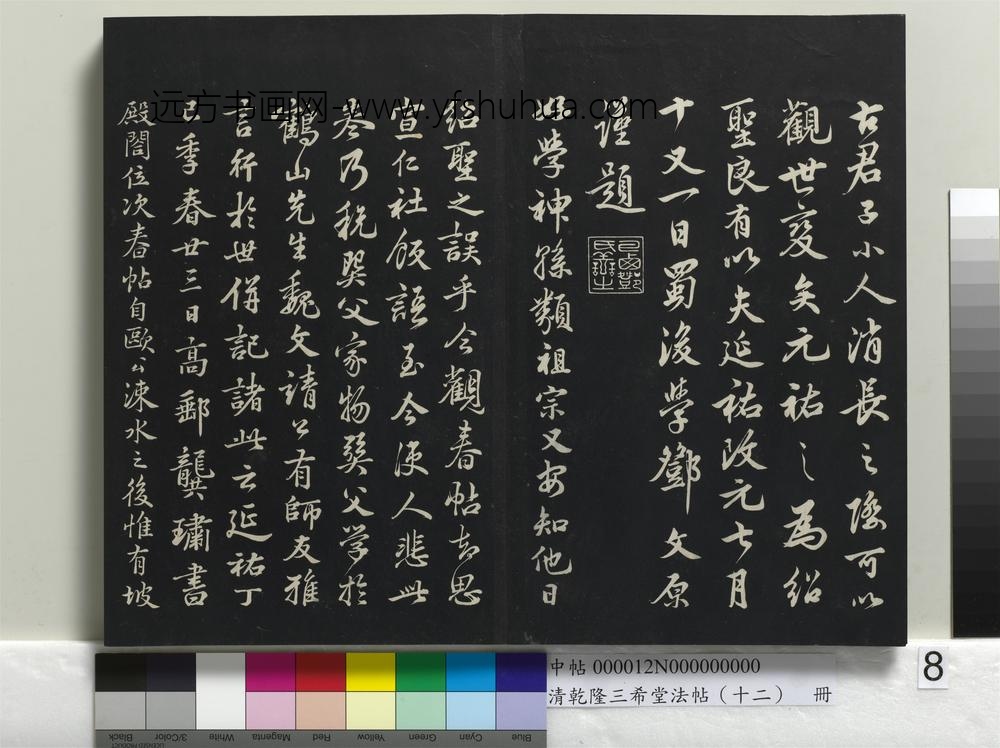 古君子小人消長之際可以
觀世變矣元祐之為紹
聖良有以夫延祐改元七月
十又一日蜀後學鄧文原
謹題
學神孫類祖宗又安知他日
紹聖之誤乎今觀春帖
宣仁社飯語至今使人悲此
卷乃税巽父家物巽父學於
鶴山先生魏文靖公有師友雅
言行於世併記諸此云延祐丁
巳季春廿三日高郵龔璛書
殿閣位次春帖自歐公涑水之後惟有坡
远方书画网-www.yfshuhua.com
中帖 000012N000000000
清乾隆三希堂法帖（十二） 冊
8
Blue
Cyan
Green
Yellow
Red
Magenta
White
3/Color
Black